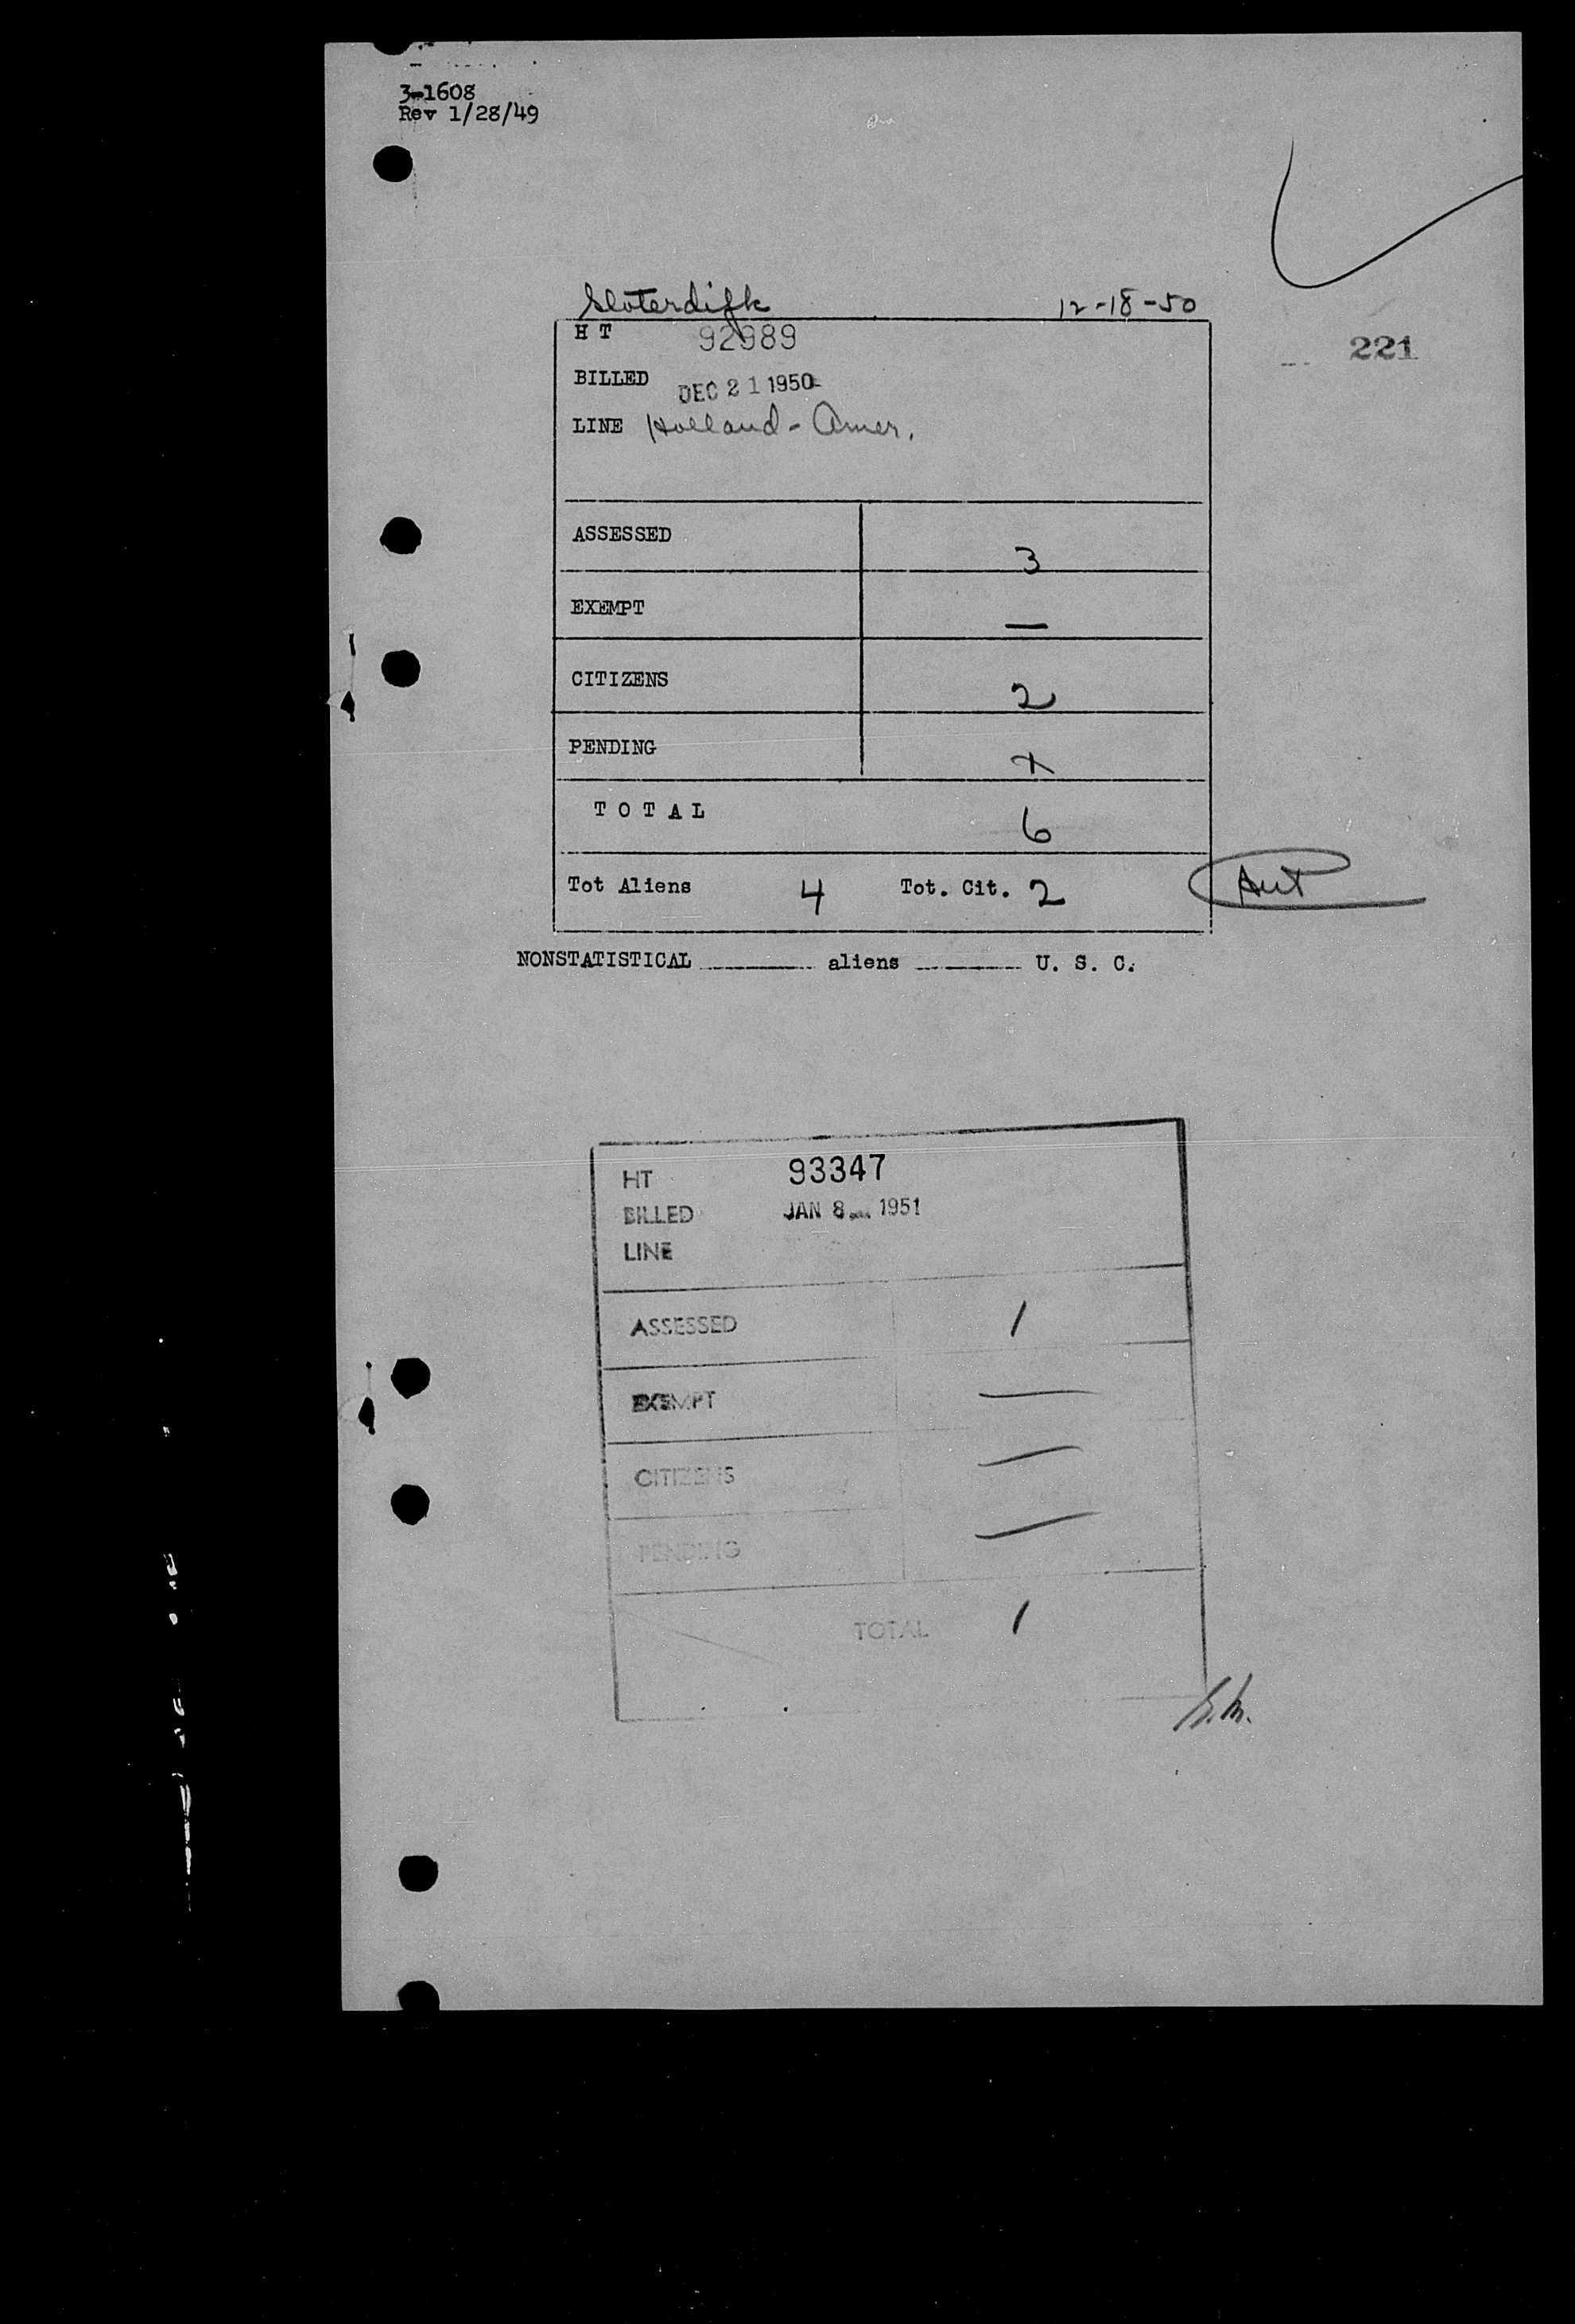 3-1608
Rev 1/28/49
Sloterdijk 12-18-50
221
H T 92989
BILLED DEC 21 1950
LINE Holland-Amer.
ASSESSED 3
EXEMPT —
CITIZENS 2
PENDING
TOTAL 6
Tot Aliens 4 Tot. Cit. 2
NONSTATISTICAL ______ aliens ______ U. S. C.
HT 93347
BILLED JAN 8 1951
LINE
ASSESSED 1
EXEMPT —
CITIZENS —
PENDING —
TOTAL 1